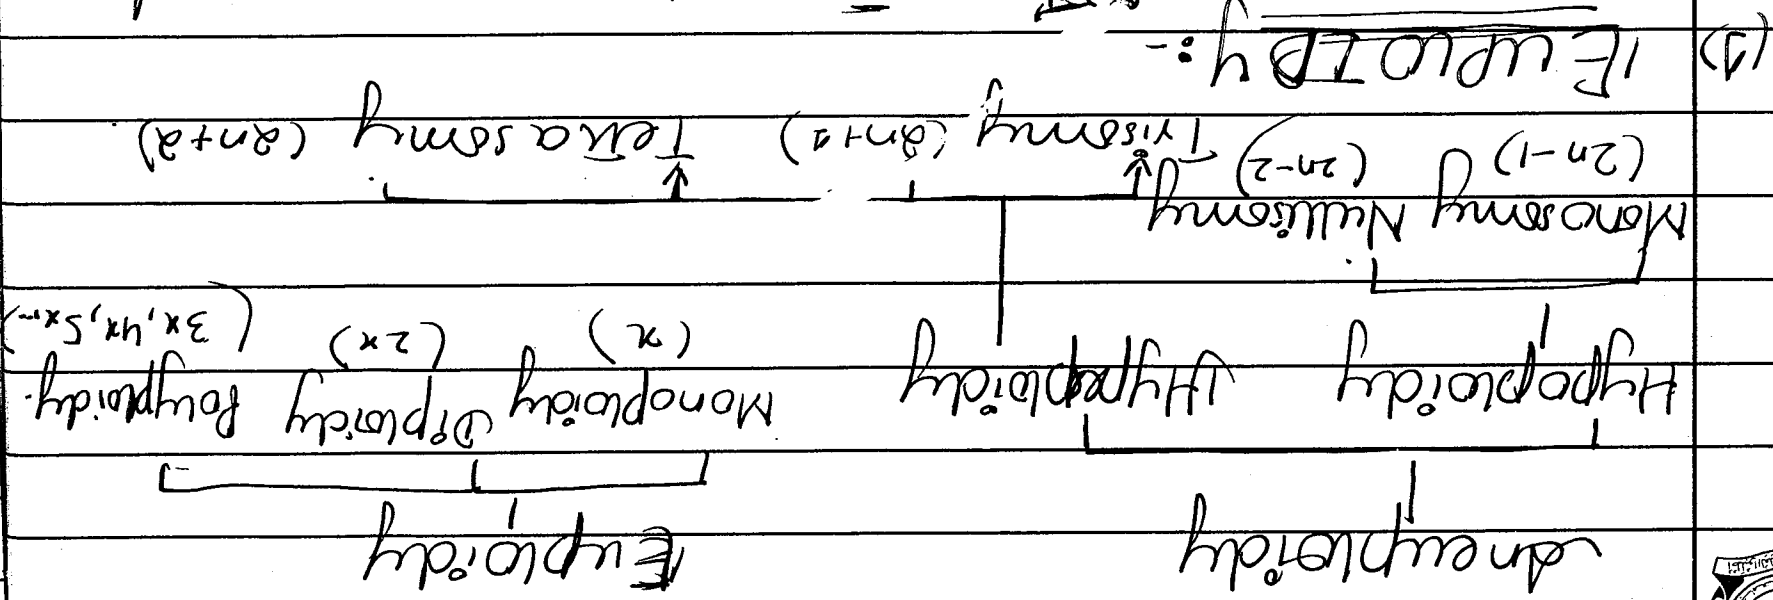 Aneuploidy Euploidy
Hypoploidy Hyperploidy Monoploidy Diploidy Polyploidy.
(x) (2x) (3x, 4x, 5x...)
Monosomy Nullisomy
(2n-1) (2n-2) Trisomy (2n+1) Tetrasomy (2n+2)
(1) EUPLOIDY :-